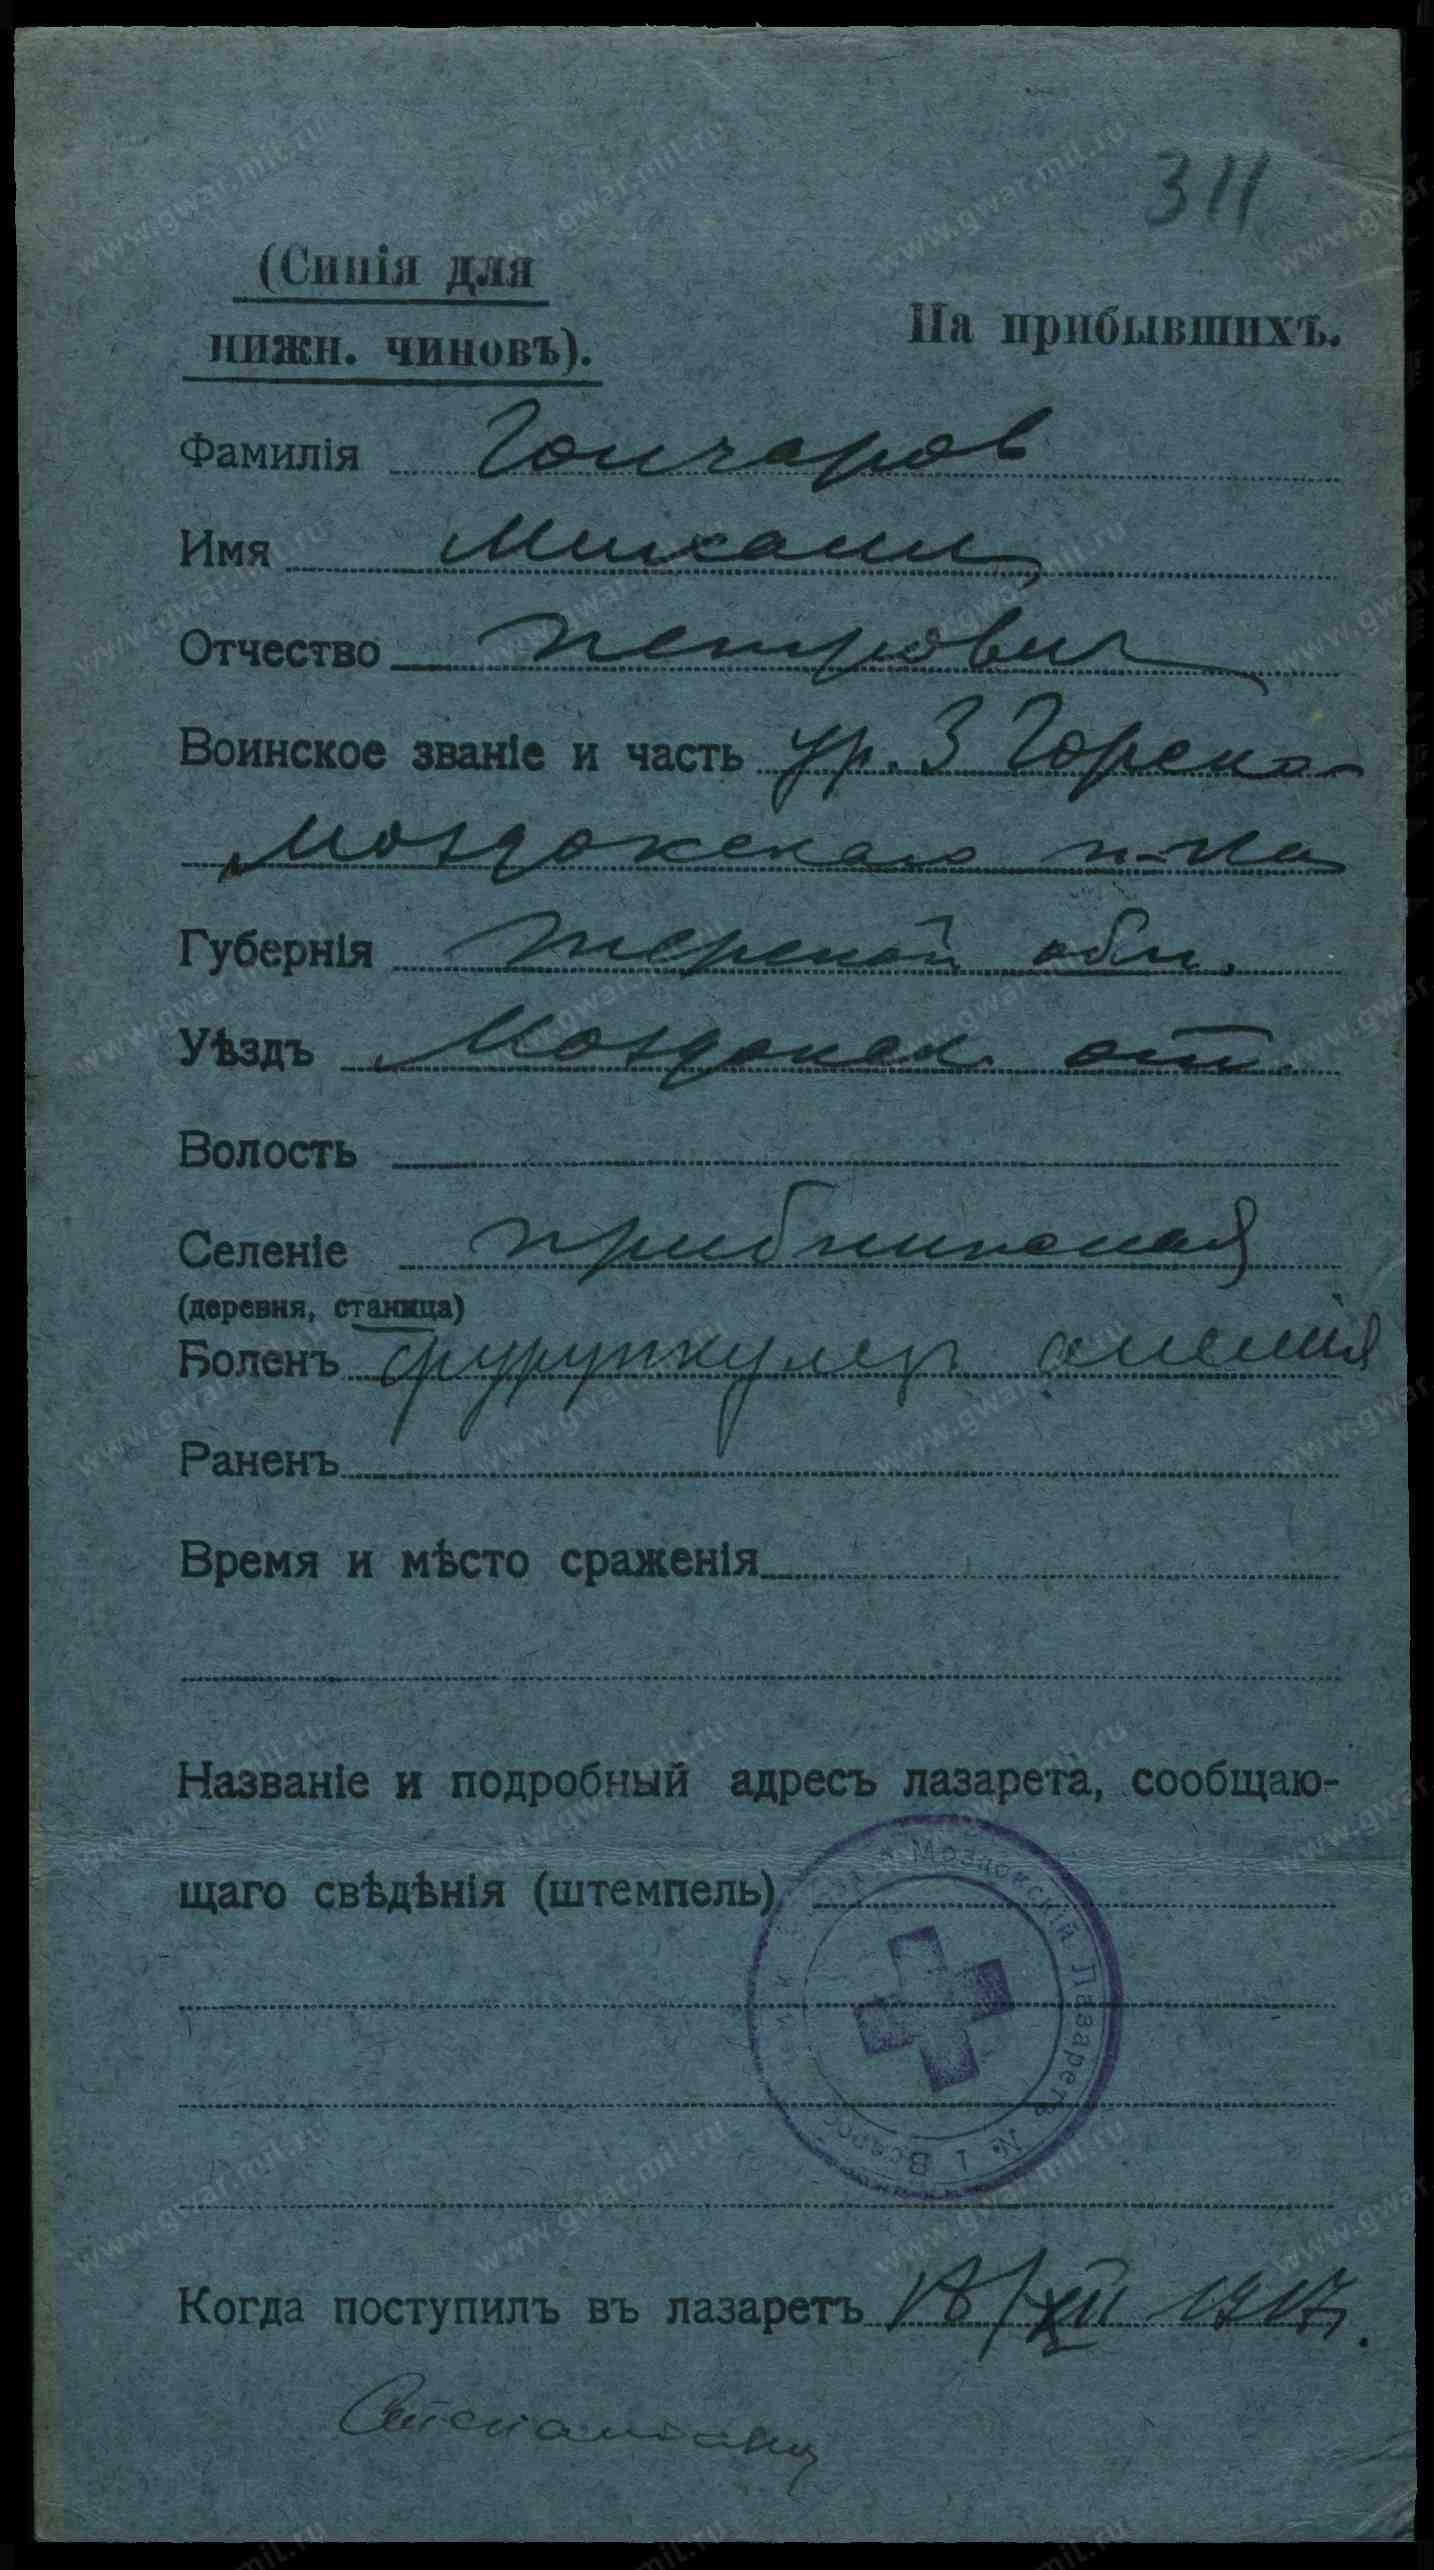 311
(Синія для
нижн. чиновъ).
На прибывшихъ.
Фамилія Гончаров
Имя Михаил
Отчество Петрович
Воинское званіе и часть ур. 3 Горско-
Моздокскаго п-ка
Губернія Терской обл.
Уѣздъ Моздокск. от.
Волость
Селеніе
(деревня, станица)
Боленъ фурункулез. анемія
Раненъ
Время и мѣсто сраженія
Названіе и подробный адресъ лазарета, сообщаю-
щаго свѣдѣнія (штемпель)
Моздокскій Лазаретъ № 1
Когда поступилъ въ лазаретъ /XII 1917.